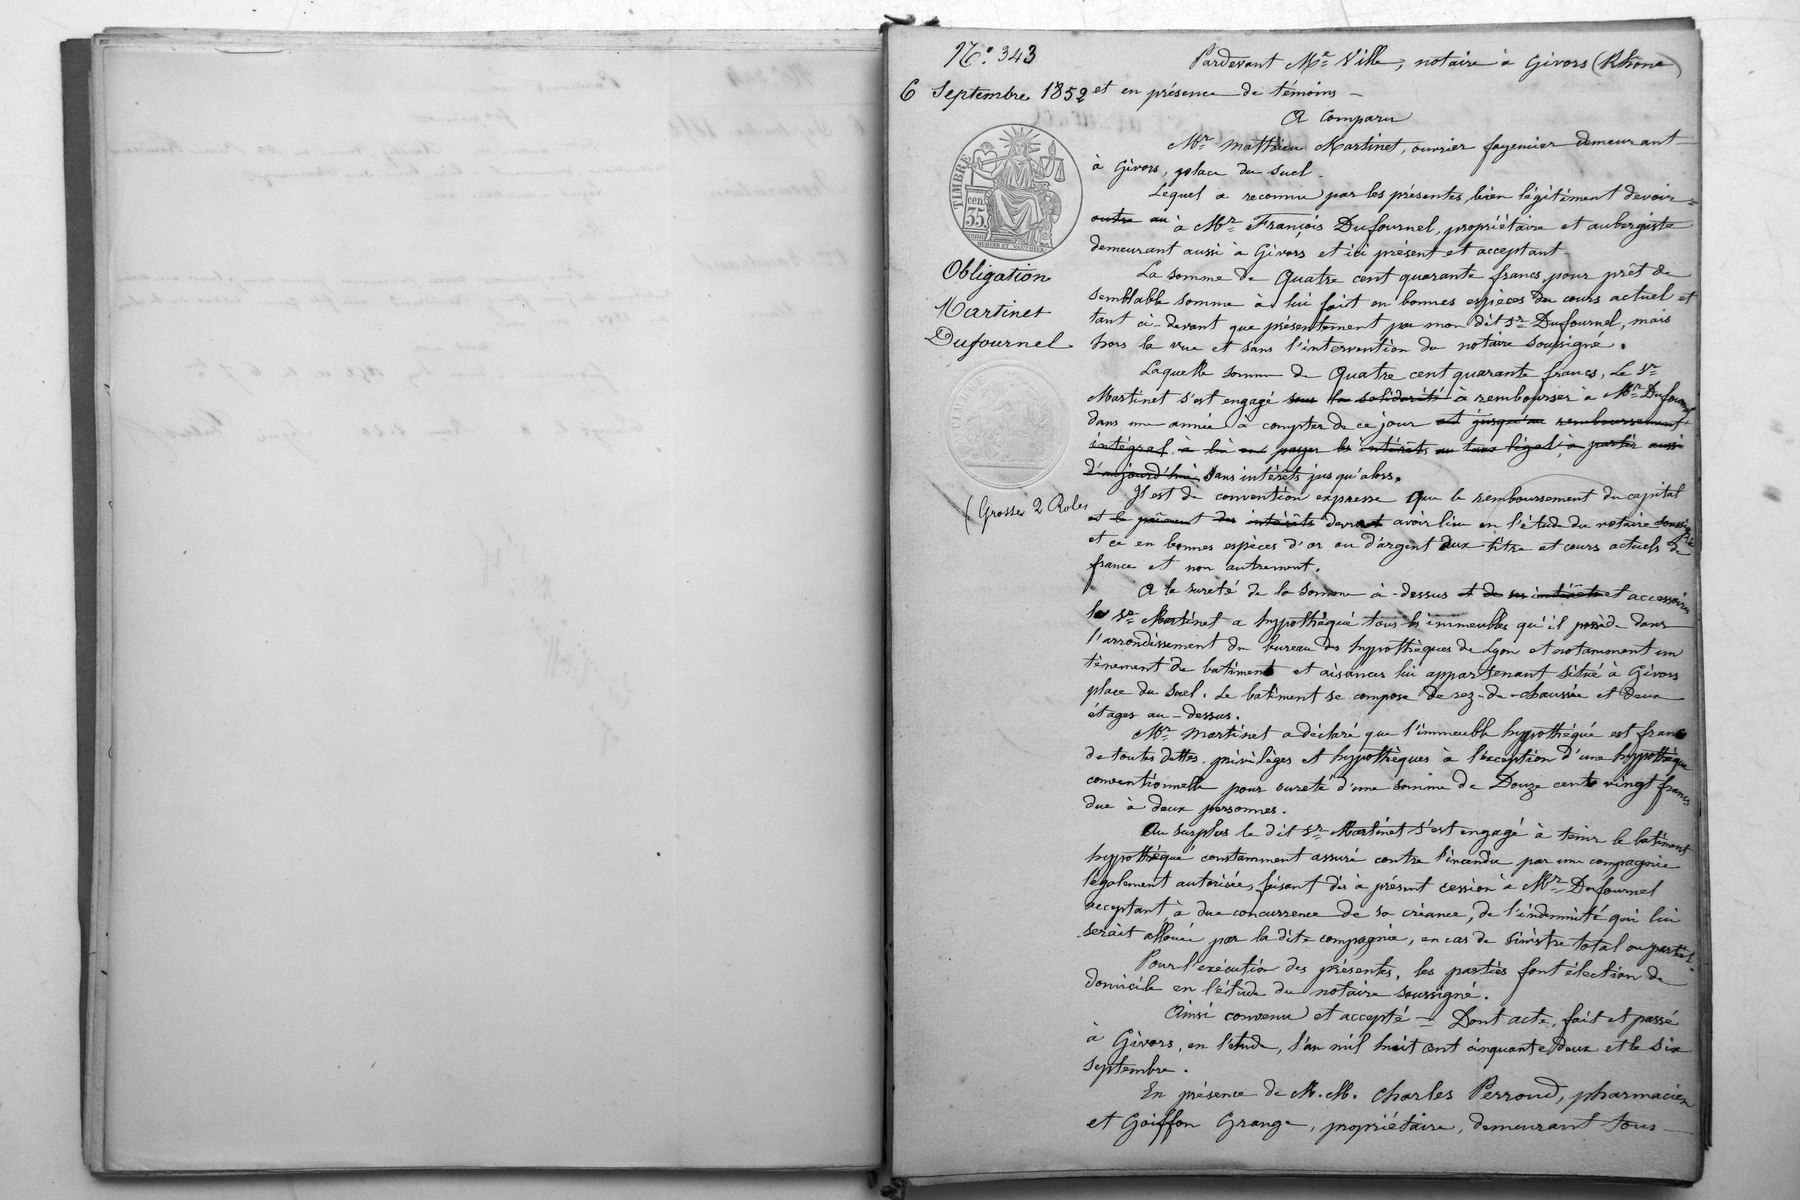 N.° 343
6 Septembre 1852
TIMBRE
35 cen.
Obligation
Martinet
Dufournel
(Grosse 2 Roles
Pardevant Me Ville, notaire à Givors (Rhone)
et en présence de témoins —
A comparu
Mr. Mathieu Martinet, ouvrier fayencier demeurant
à Givors, place du Suel.
Lequel a reconnu par les présentes, bien légitiment devoir
outre au à Mr. François Dufournel, propriétaire et aubergiste
demeurant aussi à Givors et ici présent et acceptant.
La somme de Quatre cent quarante francs, pour prêt de
semblable somme à lui fait en bonnes espèces du cours actuel et
tant ci-devant que présentement par mon dit Sr. Dufournel, mais
hors la vue et sans l'intervention du notaire soussigné.
Laquelle somme de Quatre cent quarante francs, le Sr.
Martinet s'est engagé sous la solidarité à rembourser à Mr. Dufournel
dans une année à compter de ce jour et jusqu'au remboursement
intégral, à lui en payer les intérêts au taux légal, à partir aussi
d'aujourd'hui, sans intérêts jusqu'alors.
Il est de convention expresse que le remboursement du capital
et le paiement des intérêts devront avoir lieu en l'étude du notaire soussigné
et ce en bonnes espèces d'or ou d'argent aux titre et cours actuels de
france et non autrement.
A la sureté de la somme ci-dessus et de ses intérêts et accessoires
le Sr. Martinet a hypothéqué tous les immeubles qu'il possède dans
l'arrondissement du bureau des hypothèques de Lyon et notamment un
tènement de batiment et aisances lui appartenant situé à Givors
place du Suel. Le batiment se compose de rez-de-chaussée et deux
étages au-dessus.
Mr. Martinet a déclaré que l'immeuble hypothéqué est franc
de toutes dettes, privilèges et hypothèques à l'exception d'une hypothèque
conventionnelle pour sureté d'une somme de Douze cent vingt francs
due à deux personnes.
Au surplus le dit Sr. Martinet s'est engagé à tenir le batiment
hypothéqué constamment assuré contre l'incendie par une compagnie
légalement autorisée, faisant dès à présent cession à Mr. Dufournel
acceptant, à due concurrence de sa créance, de l'indemnité qui lui
serait allouée par la dite compagnie, en cas de sinistre total ou partiel.
Pour l'exécution des présentes, les parties font élection de
domicile en l'étude du notaire soussigné.
Ainsi convenu et accepté — Dont acte, fait et passé
à Givors, en l'étude, l'an mil huit cent cinquante deux et le six
septembre.
En présence de M.M. Charles Perroud, pharmacien
et Goiffon Grange, propriétaire, demeurant tous